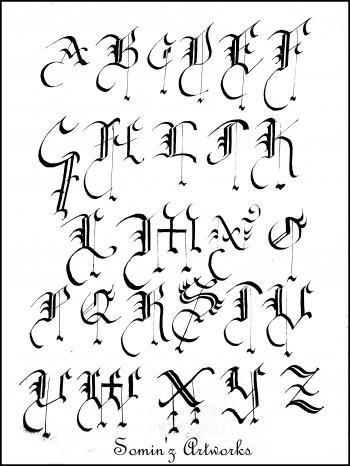 A B C D E F
G H I J K
L M N O
P Q R S T U
V W X Y Z
Somin'z Artworks